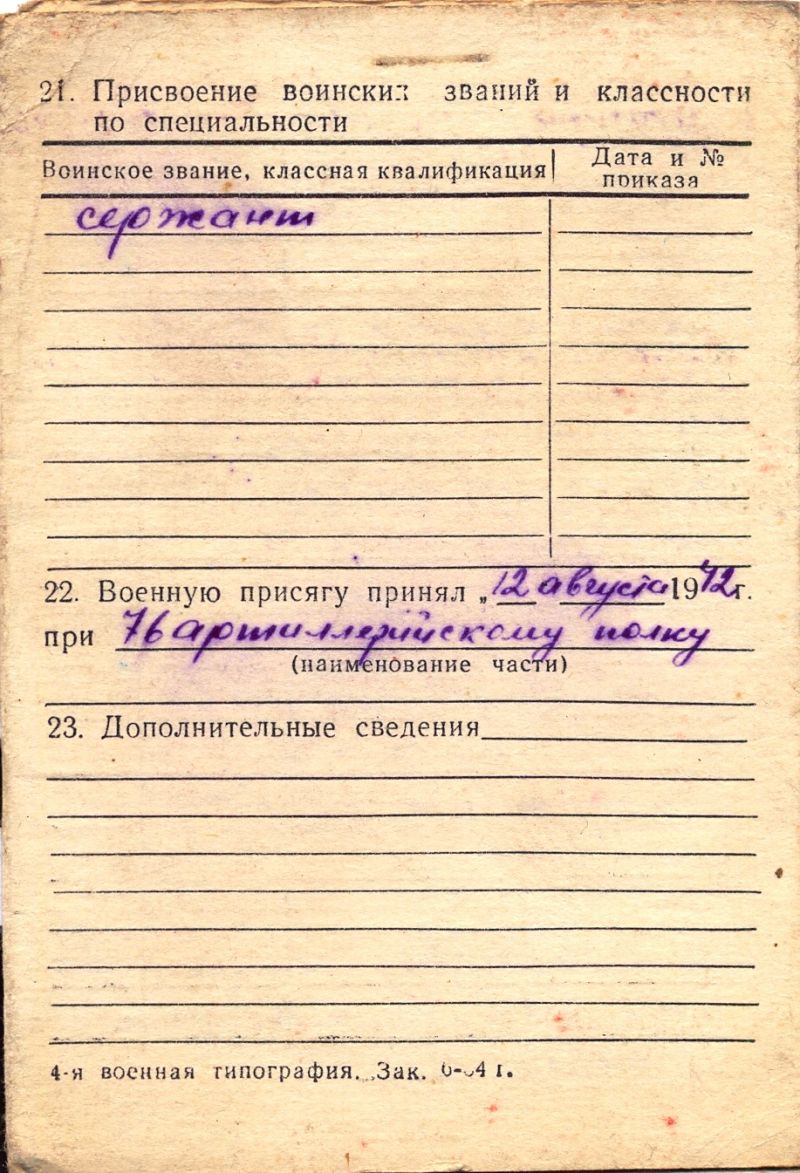 21. Присвоение воинских званий и классности
по специальности
Воинское звание, классная квалификация
Дата и №
приказа
сержант
22. Военную присягу принял „12 августа 1942г.
при 76 артиллерийскому полку
(наименование части)
23. Дополнительные сведения
4-я военная типография. Зак.